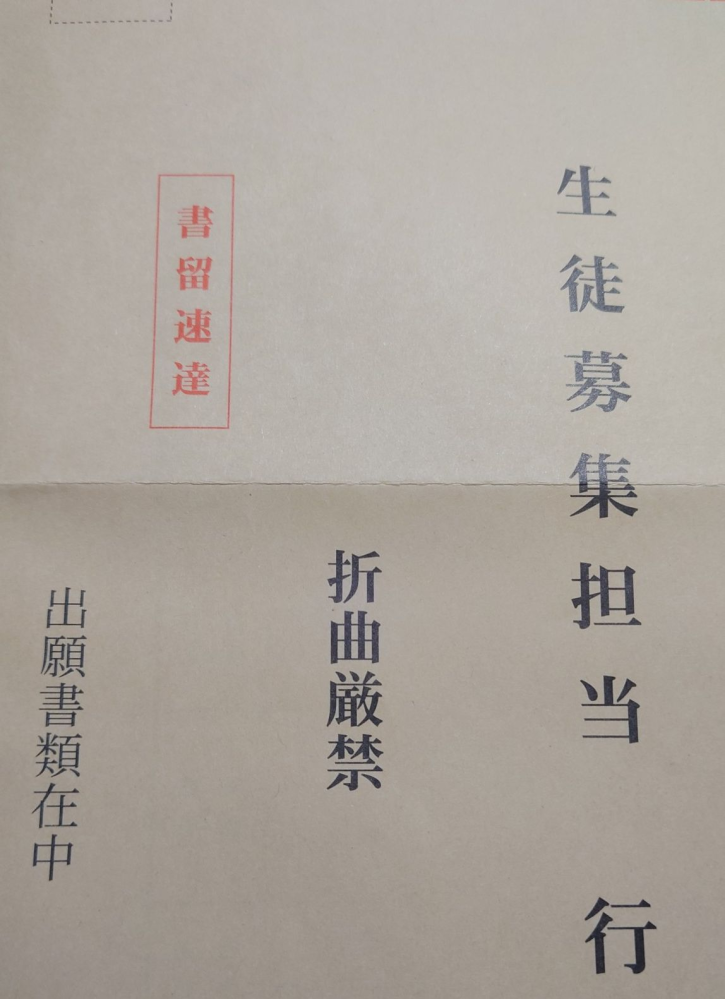 生徒募集担当 行
折曲厳禁
書留速達
出願書類在中